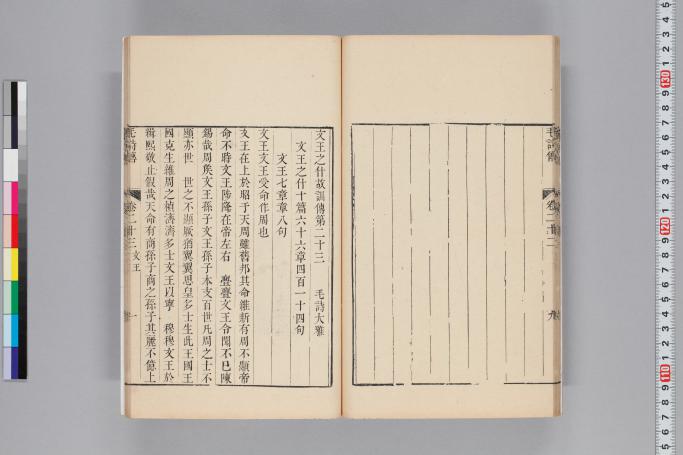 毛詩傳
卷二十二
九
文王之什故訓傳第二十三 毛詩大雅
文王之什十篇六十六章四百一十四句
文王七章章八句
文王文王受命作周也
文王在上於昭于天周雖舊邦其命維新有周不顯帝
命不時文王陟降在帝左右 亹亹文王令聞不已陳
錫哉周矦文王孫子文王孫子本支百世凡周之士不
顯亦世 世之不顯厥猶翼翼思皇多士生此王國王
國克生維周之楨濟濟多士文王以寧 穆穆文王於
緝熙敬止假哉天命有商孫子商之孫子其麗不億上
毛詩傳
卷二十三 文王
一
5 6 7 8 9 110 1 2 3 4 5 6 7 8 9 120 1 2 3 4 5 6 7 8 9 130 1 2 3 4 5